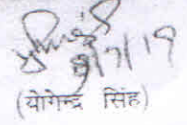 9/7/19
(योगेन्द्र सिंह)